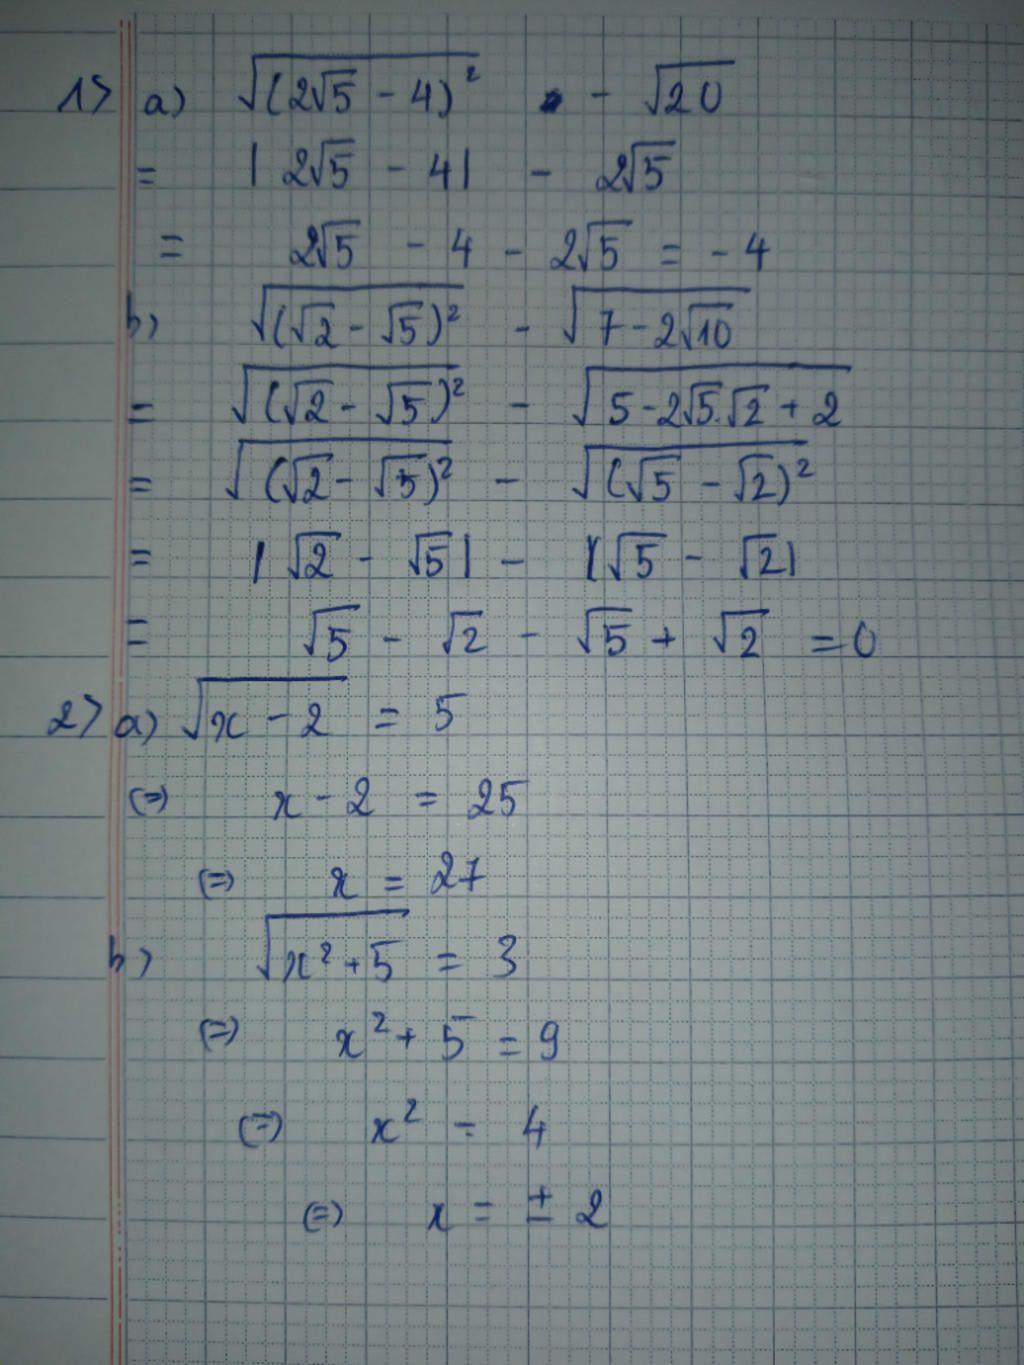 1> a) √(2√5 - 4)² - √20
= |2√5 - 4| - 2√5
= 2√5 - 4 - 2√5 = -4
b) √(√2 - √5)² - √7 - 2√10
= √(√2 - √5)² - √5 - 2√5.√2 + 2
= √(√2 - √5)² - √(√5 - √2)²
= |√2 - √5| - |√5 - √2|
= √5 - √2 - √5 + √2 = 0
2> a) √x - 2 = 5
(=) x - 2 = 25
(=) x = 27
b) √x² + 5 = 3
(=) x² + 5 = 9
(=) x² = 4
(=) x = ± 2